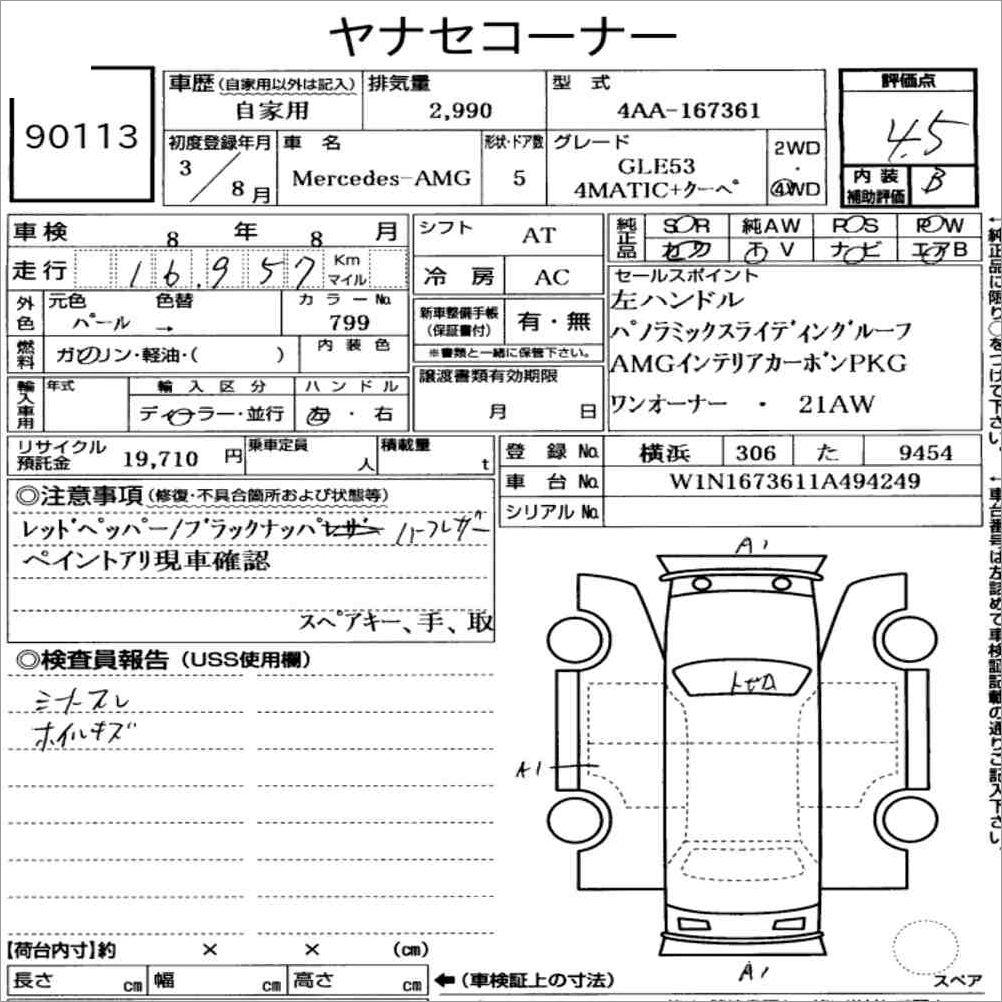 ヤナセコーナー
90113
車歴(自家用以外は記入) 排気量 型 式 評価点
自家用 2,990 4AA-167361 4.5
初度登録年月 車 名 形状・ドア数 グレード 2WD
3/8月 Mercedes-AMG 5 GLE53 ・
4MATIC+クーペ 4WD
内装補助評価 B
車検 8 年 8 月 シフト AT 純正品 SOR 純AW ROS ROW
走行 16,957 Km マイル 冷 房 AC TV ナビ エアB
外色 元色 色替 カラーNo.
パール → 799
新車整備手帳(保証書付) 有・無
※書類と一緒に保管下さい。
セールスポイント
左ハンドル
パノラミックスライディングルーフ
AMGインテリアカーボンPKG
ワンオーナー ・ 21AW
燃料 ガソリン・軽油・( ) 内 装 色
譲渡書類有効期限
月 日
輸入車用 年式 輸 入 区 分 ハ ン ド ル
ディーラー・並行 左・右
リサイクル預託金 19,710 円 乗車定員 人 積載量 t
登 録 No. 横浜 306 た 9454
車 台 No. W1N1673611A494249
シリアル No.
◎注意事項(修復・不具合箇所および状態等)
レッドペッパー/ブラックナッパレザー ハーフレザー
ペイントアリ現車確認
スペアキー、手、取
◎検査員報告(USS使用欄)
ミナースレ
ホイルキズ
A1
トビロ
A1
A1
スペア
【荷台内寸】約 × × (cm)
長さ cm 幅 cm 高さ cm ←(車検証上の寸法)
←純正品に限り○をつけて下さい。
←車台番号は左詰めて車検証記載の通りご記入下さい。